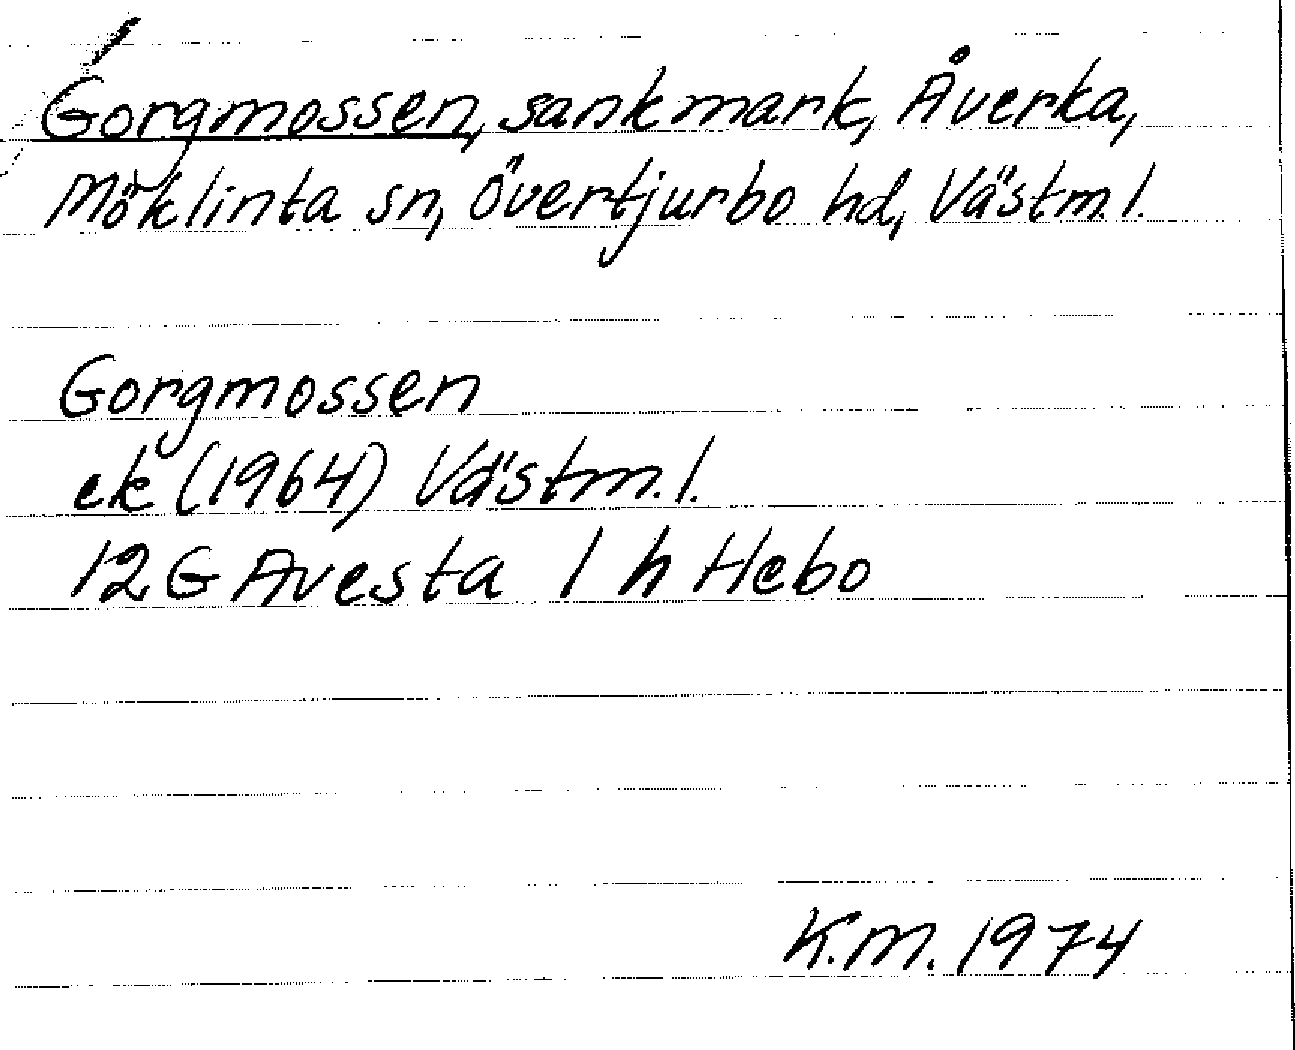 Gorgmossen, sankmark, Åverka,
Möklinta sn, Övertjurbo hd, Västm. l.
Gorgmossen
ek (1964) Västm. l.
12 G Avesta 1 h Hebo
K.M. 1974